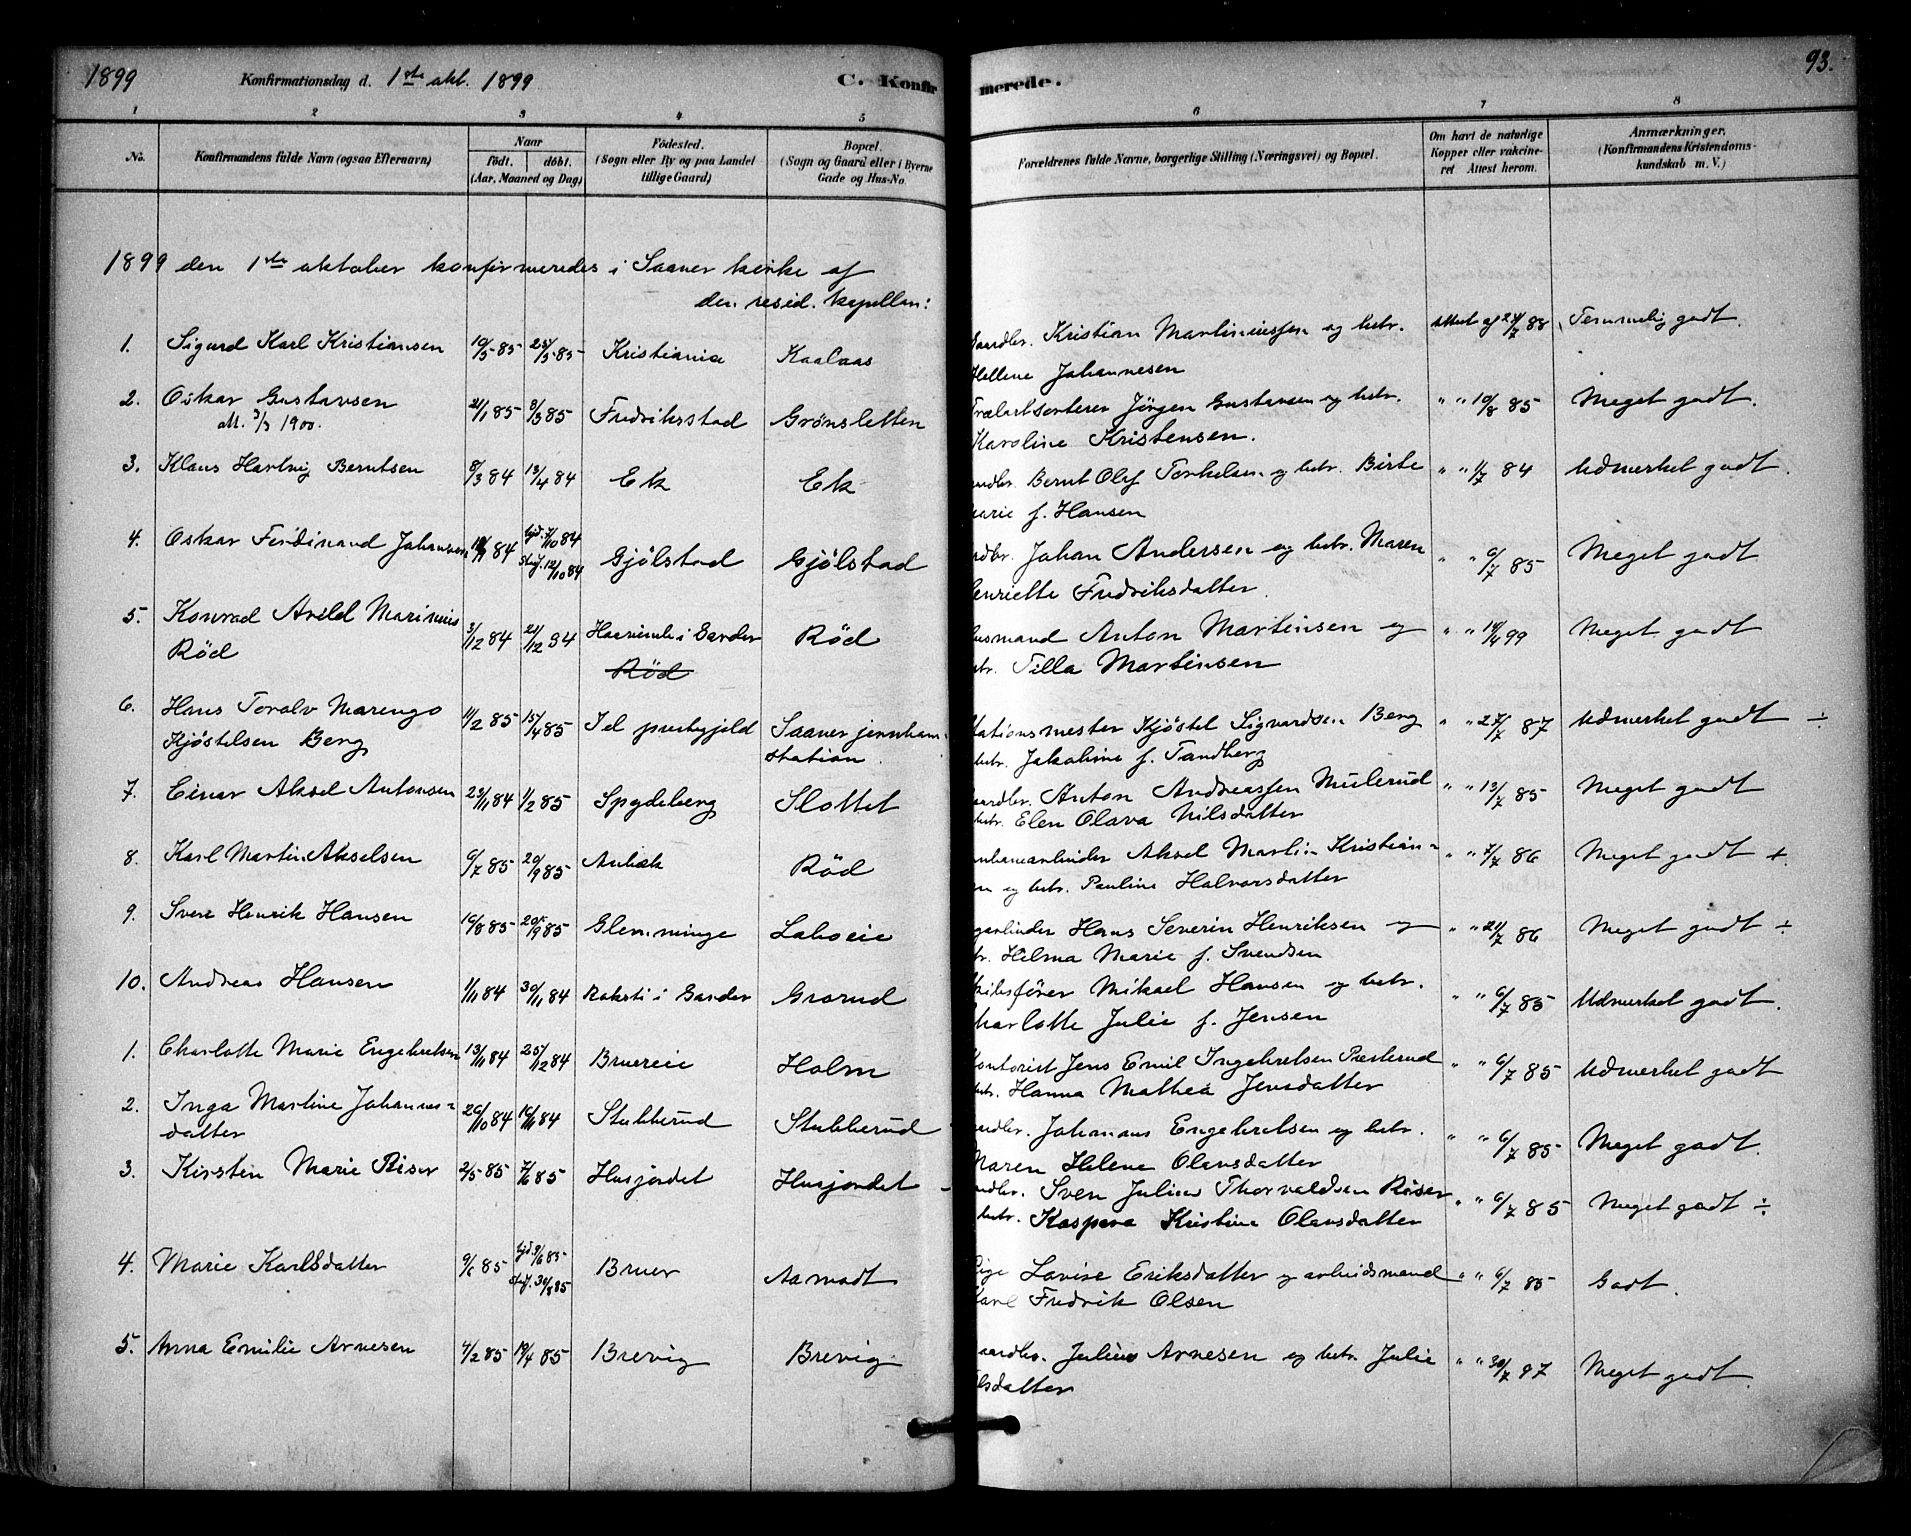 1899 Konfirmationsdag d. 1ste okt. 1899 C. Konfirmerede. 93.
1 2 3 4 5 6 7 8
No. Konfirmandens fulde Navn (ogsaa Efternavn) Naar født. døbt. (Aar, Maaned og Dag) Fødested. (Sogn eller By og paa Landet tillige Gaard) Bopæl. (Sogn og Gaard eller i Byerne Gade og Hus-No. Forældrenes fulde Navne, borgerlige Stilling (Næringsvei) og Bopæl. Om havt de naturlige Kopper eller vakcineret Attest herom. Anmærkninger, (Konfirmandens Kristendomskundskab m. V.)
1899 den 1ste oktober konfirmeredes i Saaner kirke af
den resid. kapellan:
1. Sigurd Karl Kristiansen 10/5 85 25/5 85 Kristiania Kaalaas Kristian Martiniussen og hstr. Attest af 24/7 88 Temmelig godt.
Hellene Johannesen
2. Oskar Gustavsen 21/1 85 3/3 85 Fredriksstad Grønsletten Jørgen Gustavsen og hstr. " " 10/8 85 Meget godt.
att. 3/3 1900.
Karoline Kristensen.
3. Klaus Hartvig Berntsen 8/3 84 13/4 84 Ek Ek Bernt Olaf Torkelsen og hstr. Birte " " 1/7 84 Udmerket godt.
marie f. Hansen
4. Oskar Ferdinand Johansen 84 hjd. 7/10 84 Stadf. 12/10 84 Gjølstad Gjølstad Johan Andersen og hstr. Maren " " 6/7 85 Meget godt.
enriette Fredriksdatter.
5. Konrad Arild Marinius 3/12 84 21/12 94 i Garder Rød usmand Anton Martinsen og " " 99 Meget godt
Rød Rød hstr. Tilla Martinsen
6. Hans Toralv Marengo 11/2 85 15/4 85 Id prestegjeld Saaner jernbane- tationsmester Kjøstel Sigvardsen Berg " " 27/7 87 Udmerket godt ÷
Kjøstelsen Berg station. hstr. Jakobine f. Tandberg
7. Einar Aksel Antonsen 23/11 84 1/2 85 Spydeberg Slottet aardbr. Anton Andreassen Mulerud " " 13/7 85 Meget godt
hstr. Elen Olava Nilsdatter
8. Karl Martin Akselsen 6/7 85 20/9 85 Anbæk Rød Aksel Martin Kristian- " " 7/7 86 Meget godt +
en og hstr. Pauline Halvorsdatter
9. Svere Henrik Hansen 16/8 85 20/9 85 Glemminge Laboeie Hans Severin Henriksen og " " 21/7 86 Meget godt ÷
tr. Hilma Marie f. Svendsen
10. Andreas Hansen 1/11 84 30/11 84 i Garder Grorud Mikael Hansen og hstr. " " 6/7 85 Udmerket godt.
harlotte Julie f. Jensen
1. Charlotte Marie Engebretsen 13/11 84 25/12 84 Bruereie Holm ontorist Jens Emil Ingebretsen Presterud " " 6/7 85 Udmerket godt
hstr. Hanna Mathea Jensdatter
2. Inga Martine Johannes- 26/10 84 16/11 84 Stubberud Stubberud Johannes Engebretsen og hstr. " " 6/7 85 Meget godt.
datter
Maren Helene Olausdatter
3. Kirsten Marie Riser 2/5 85 7/6 85 Husjordet Husjordet Sven Julius Thorvaldsen Riser " " 6/7 85 Meget godt ÷
hstr. Kaspara Kristine Olausdatter
4. Marie Karlsdatter 9/6 85 hjd. 9/6 85 Bruer Aamodt Pige Lovise Eriksdatter og arbeidsmand " " 6/7 85 Godt.
Stadf. 30/8 85 Karl Fredrik Olsen
5. Anna Emilie Arnesen 4/2 85 19/4 85 Brevig Brevig aardbr. Julius Arnesen og hstr. Julie " " 30/7 97 Meget godt.
lsdatter